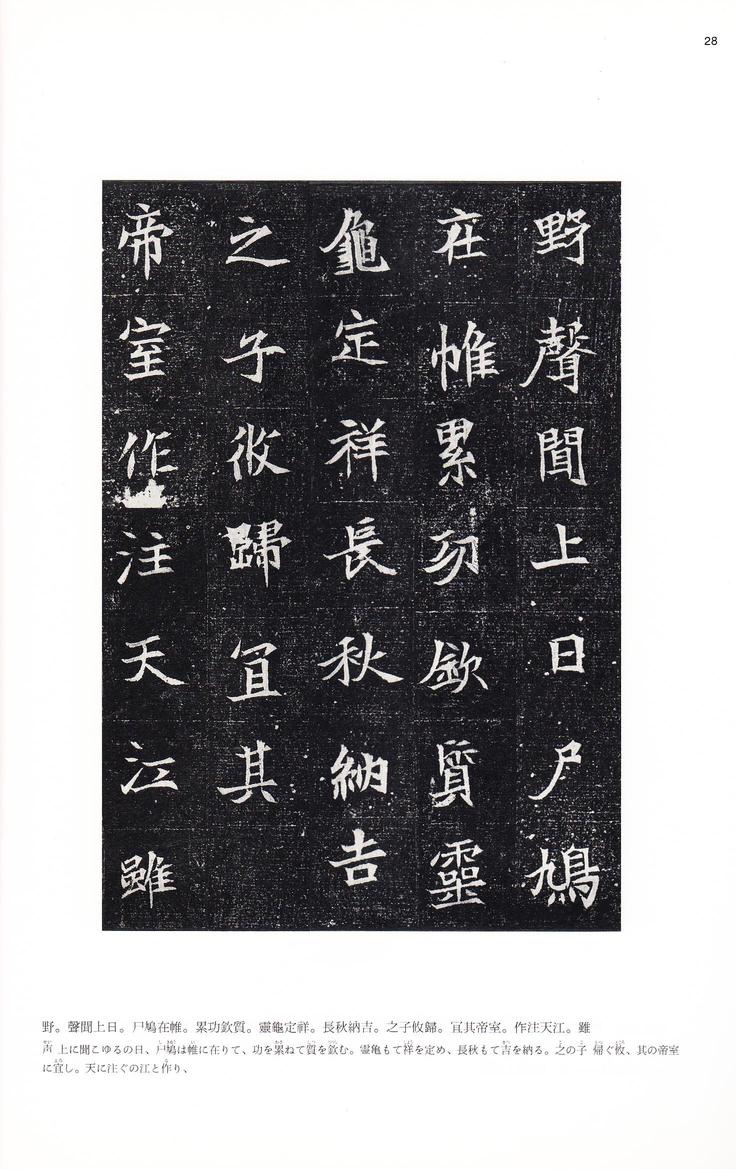 28
野聲聞上日尸鳩
在帷累功欽質靈
龜定祥長秋納吉
之子攸歸冝其
帝室作注天江雖
野。聲聞上日。尸鳩在帷。累功欽質。靈龜定祥。長秋納吉。之子攸歸。冝其帝室。作注天江。雖
声 上に聞こゆるの日、尸鳩は帷に在りて、功を累ねて質を欽む。霊亀もて祥を定め、長秋もて吉を納る。之の子 帰ぐ攸、其の帝室
に冝し。天に注ぐの江と作り、